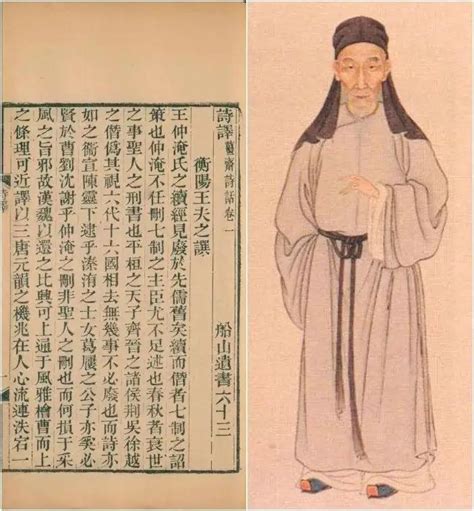 詩譯 薑齋詩話卷一 船山遺書六十三
衡陽王夫之譔
王仲淹氏之續經見廢於先儒舊矣續而僭者七制之詔
策也仲淹不任刪七制之主臣尤不足述也春秋者衰世
之事聖人之刑書也平桓之天子齊晉之諸侯荆吳徐越
之僭僞其視六代十六國相去無幾事不必廢也而詩亦
如之衛宣陳靈下逮乎溱洧之士女葛屨之公子亦奚必
賢於曹劉沈謝乎仲淹之刪非聖人之刪也而何損于采
風之旨邪故漢魏以還之比興可上通於風雅檜曹而上
之條理可近譯以三唐元韻之機兆在人心流連泆宕一